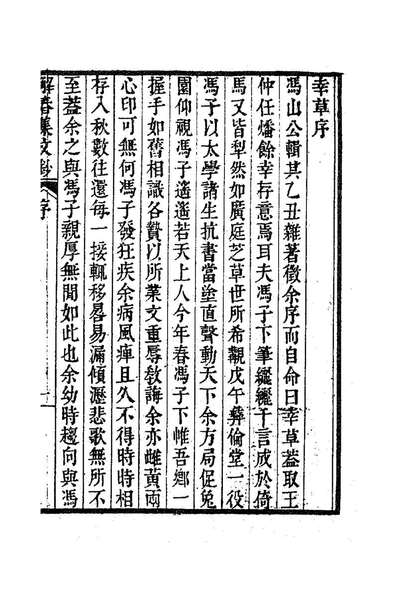 幸草序
馮山公輯其乙丑雜著徵余序而自命曰幸草葢取王
仲任燔餘幸存意焉耳夫馮子下筆纚纚千言成於倚
馬又皆犁然如廣庭芝草世所希觀戊午彝倫堂一役
馮子以太學諸生抗書當塗直聲動天下余方局促兔
園仰視馮子遙遙若天上人今年春馮子下帷吾鄉一
握手如舊相識各贄以所業文重辱教誨余亦雌黃兩
心印可無何馮子發狂疾余病風痺且久不得時時相
存入秋數往還每一接輒移晷易漏傾瀝悲歌無所不
至葢余之與馮子親厚無間如此也余幼時趨向與馮
解舂集文鈔 序 一